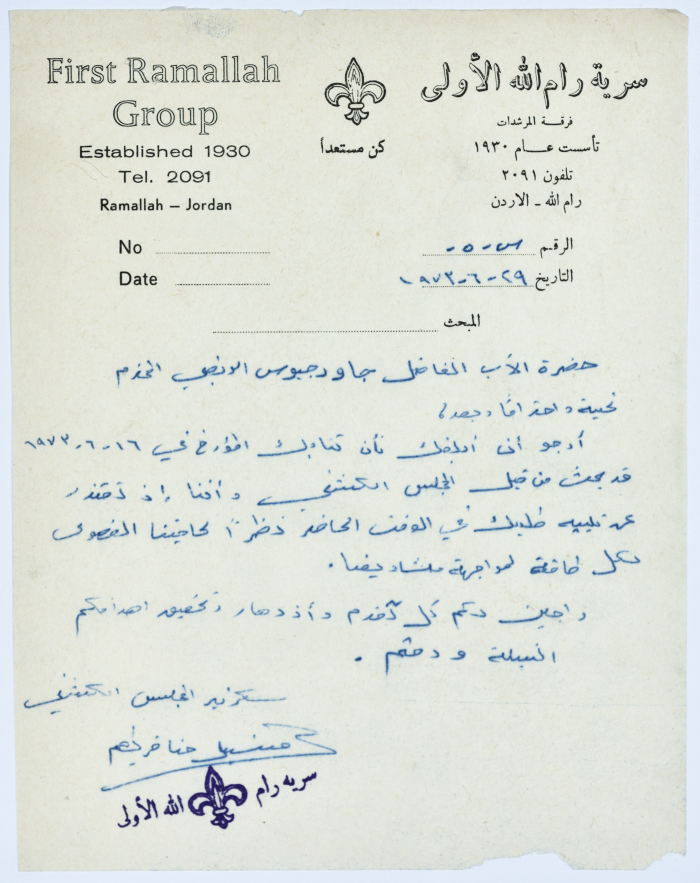 First Ramallah
Group
Established 1930
Tel. 2091
Ramallah – Jordan
سرية رام الله الأولى
فرقة المرشدات
تأسست عام ١٩٣٠
تلفون ٢٠٩١
رام الله - الاردن
كن مستعداً
No
Date
الرقم س-٥-
التاريخ ٢٩-٦-١٩٧٣
المبحث
حضرة الأب الفاضل المحترم
تحية واحتراما وبعد،
أرجو أن أبلغك بأن كتابك المؤرخ في ١٦-٦-١٩٧٣
قد بحث من قبل المجلس الكشفي وأننا إذ نعتذر
عن تلبية طلبك في الوقت الحاضر نظراً لحاجتنا القصوى
لكل طاقة لمواجهة مشاريعنا.
راجين لكم كل تقدم وأزدهار وتحقيق اهدافكم
النبيلة ودمتم.
سكرتير المجلس الكشفي
حنا
سريه رام الله الأولى